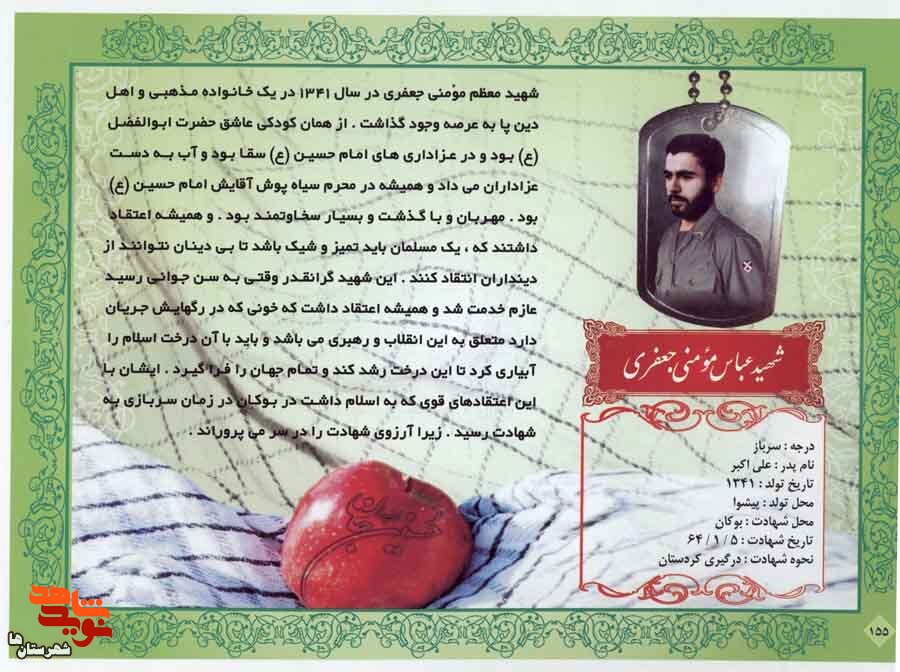 شهید معظم مؤمنی جعفری در سال ۱۳۴۱ در یک خانواده مذهبی و اهل
دین پا به عرصه وجود گذاشت . از همان کودکی عاشق حضرت ابوالفضل
(ع) بود و در عزاداری های امام حسین (ع) سقا بود و آب به دست
عزاداران می داد و همیشه در محرم سیاه پوش آقایش امام حسین (ع)
بود . مهربان و با گذشت و بسیار سخاوتمند بود . و همیشه اعتقاد
داشتند که ، یک مسلمان باید تمیز و شیک باشد تا بی دینان نتوانند از
دینداران انتقاد کنند . این شهید گرانقدر وقتی به سن جوانی رسید
عازم خدمت شد و همیشه اعتقاد داشت که خونی که در رگهایش جریان
دارد متعلق به این انقلاب و رهبری می باشد و باید با آن درخت اسلام را
آبیاری کرد تا این درخت رشد کند و تمام جهان را فرا گیرد . ایشان با
این اعتقادهای قوی که به اسلام داشت در بوکان در زمان سربازی به
شهادت رسید . زیرا آرزوی شهادت را در سر می پروراند .
شهید عباس مؤمنی جعفری
درجه : سرباز
نام پدر : علی اکبر
تاریخ تولد : ۱۳۴۱
محل تولد : پیشوا
محل شهادت : بوکان
تاریخ شهادت : ۵ / ۱ / ۶۴
نحوه شهادت : درگیری کردستان
نوید شاهد
شهرستان ها
۱۵۵